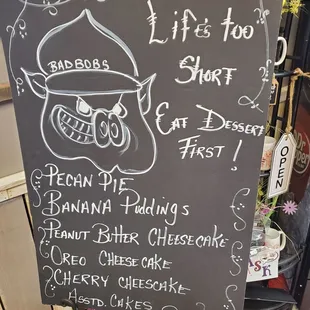 Life's too
Short
BADBOBS
Eat Dessert
First!
Pecan Pie
Banana Puddings
Peanut Butter Cheesecake
Oreo Cheesecake
Cherry Cheescake
Asstd. Cakes
OPEN
Dr Pepper